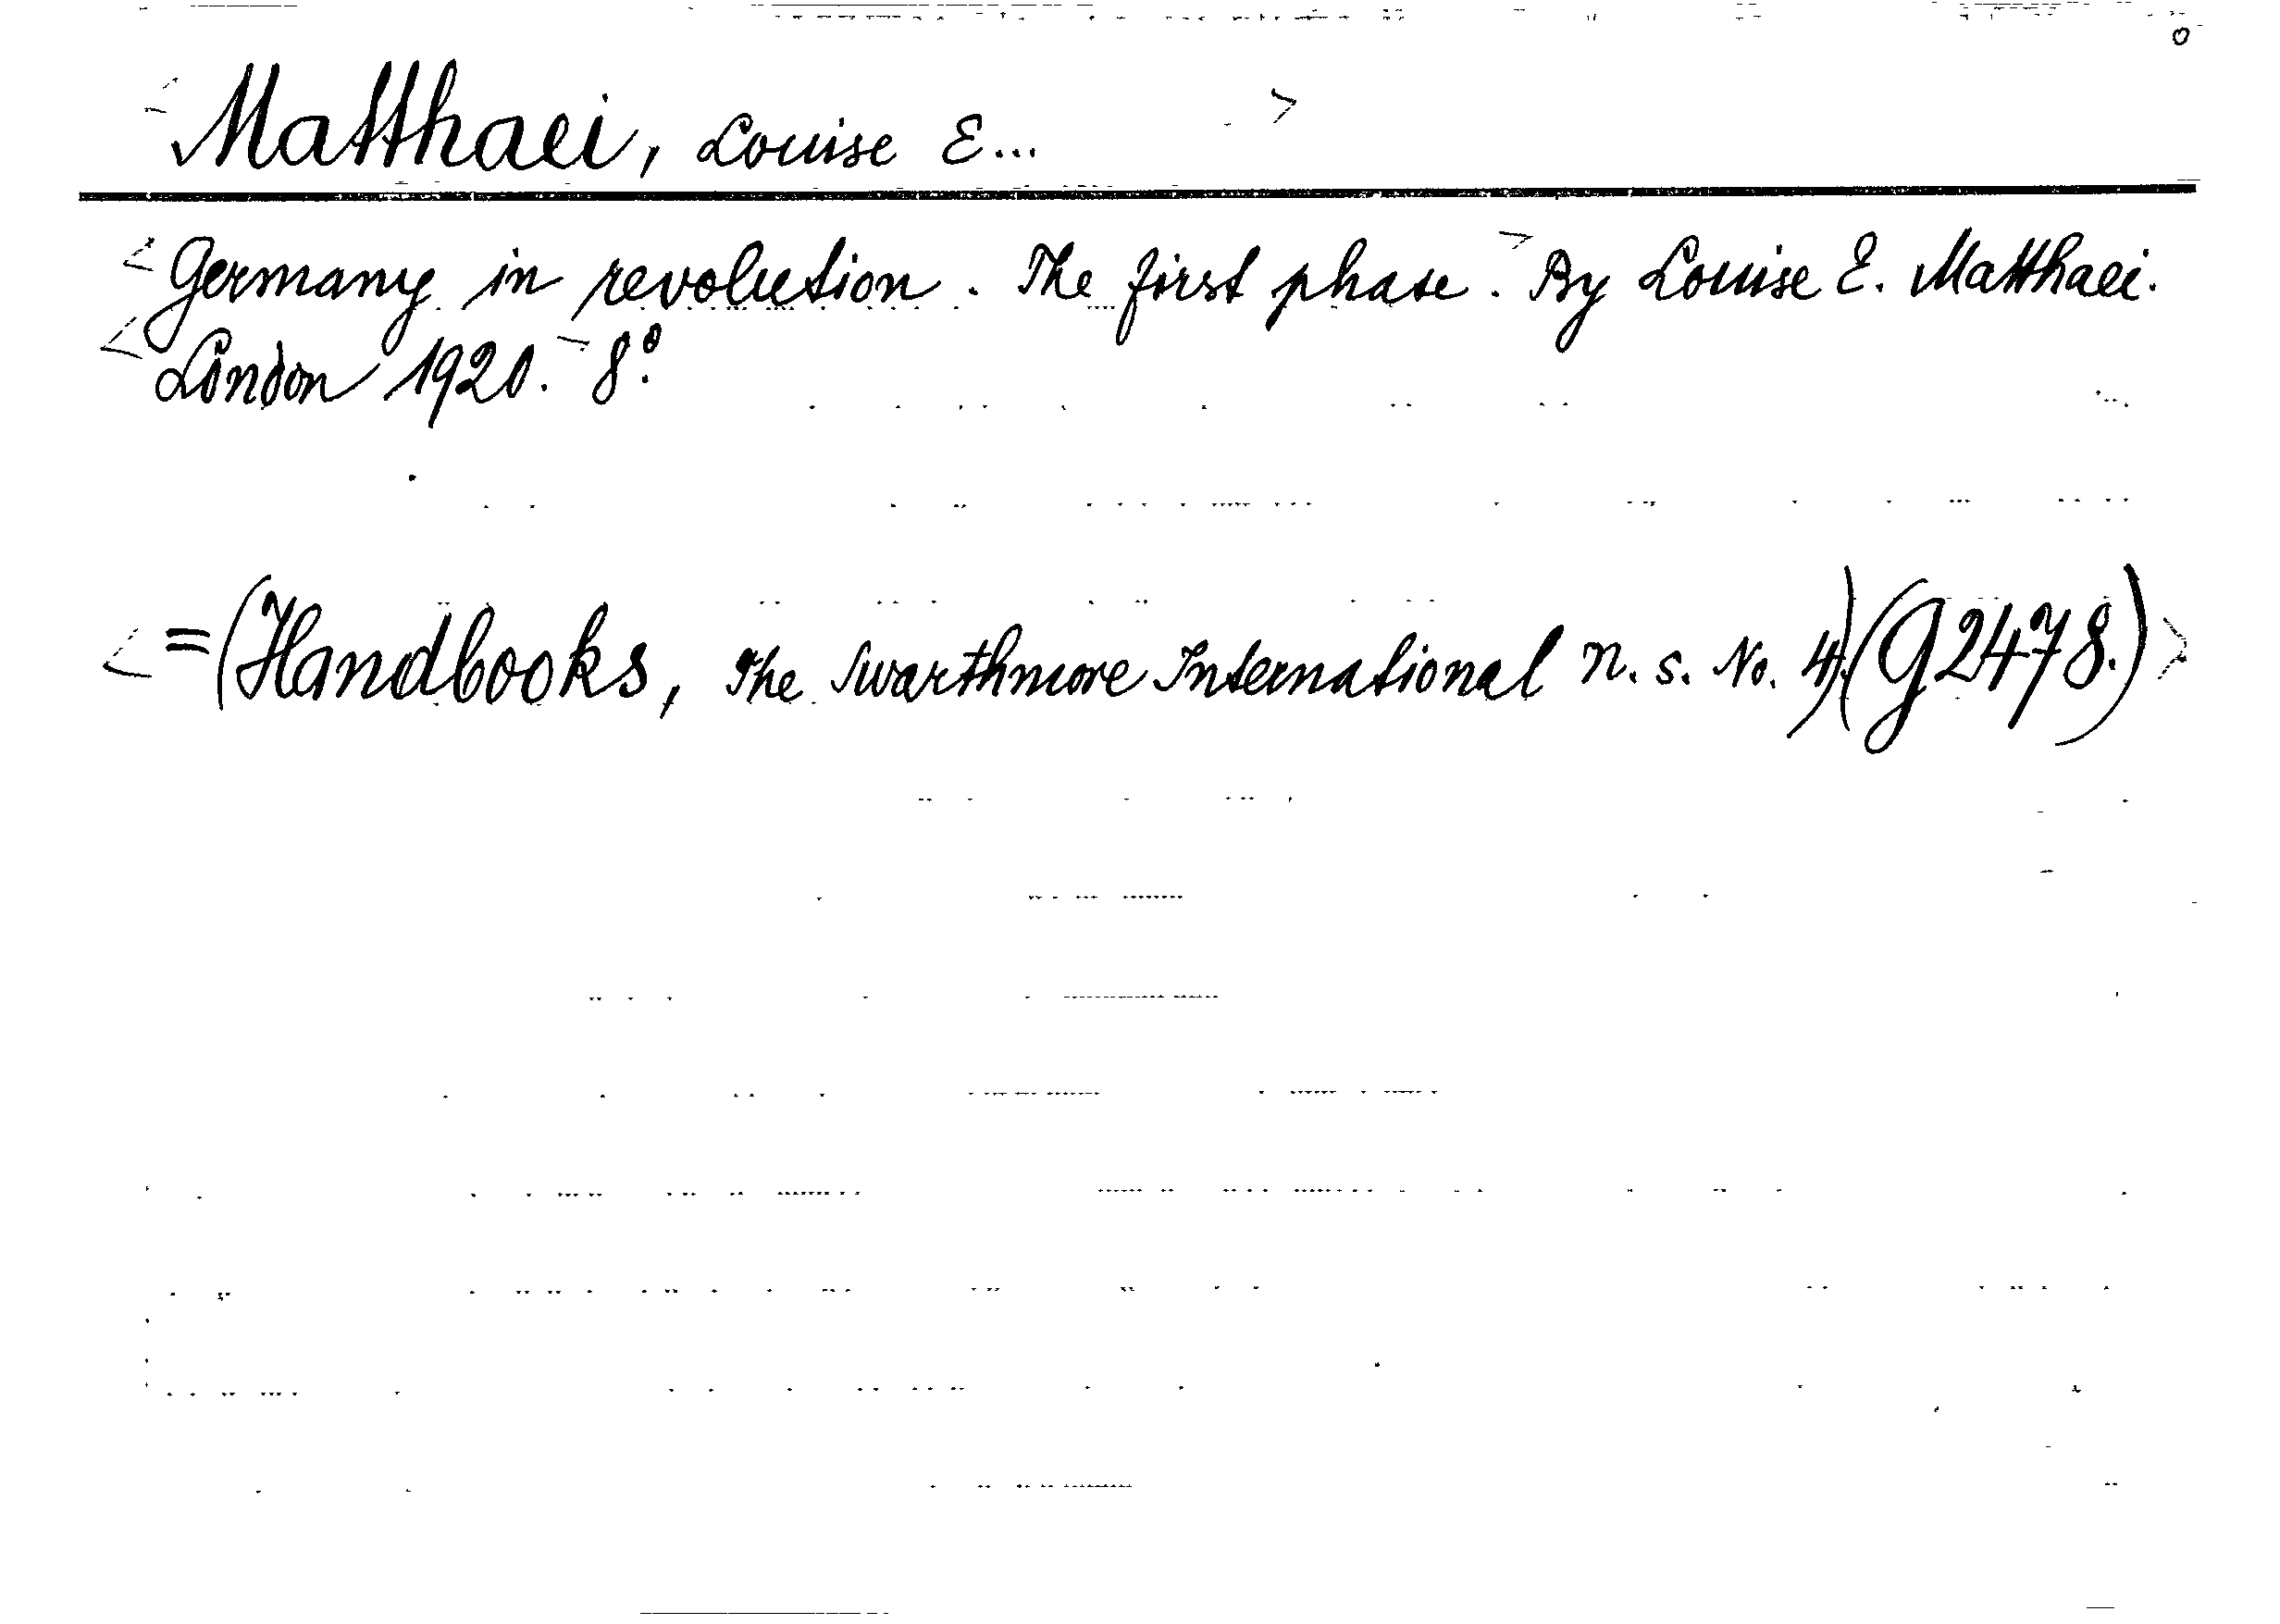 <Matthaei, Louise E...>
<Germany in revolution. The first phase.> By Louise E. Matthaei.
<London 1920.> 8°.
<=(Handbooks, The Swarthmore International n. s. No. 4.)(G2478.)>